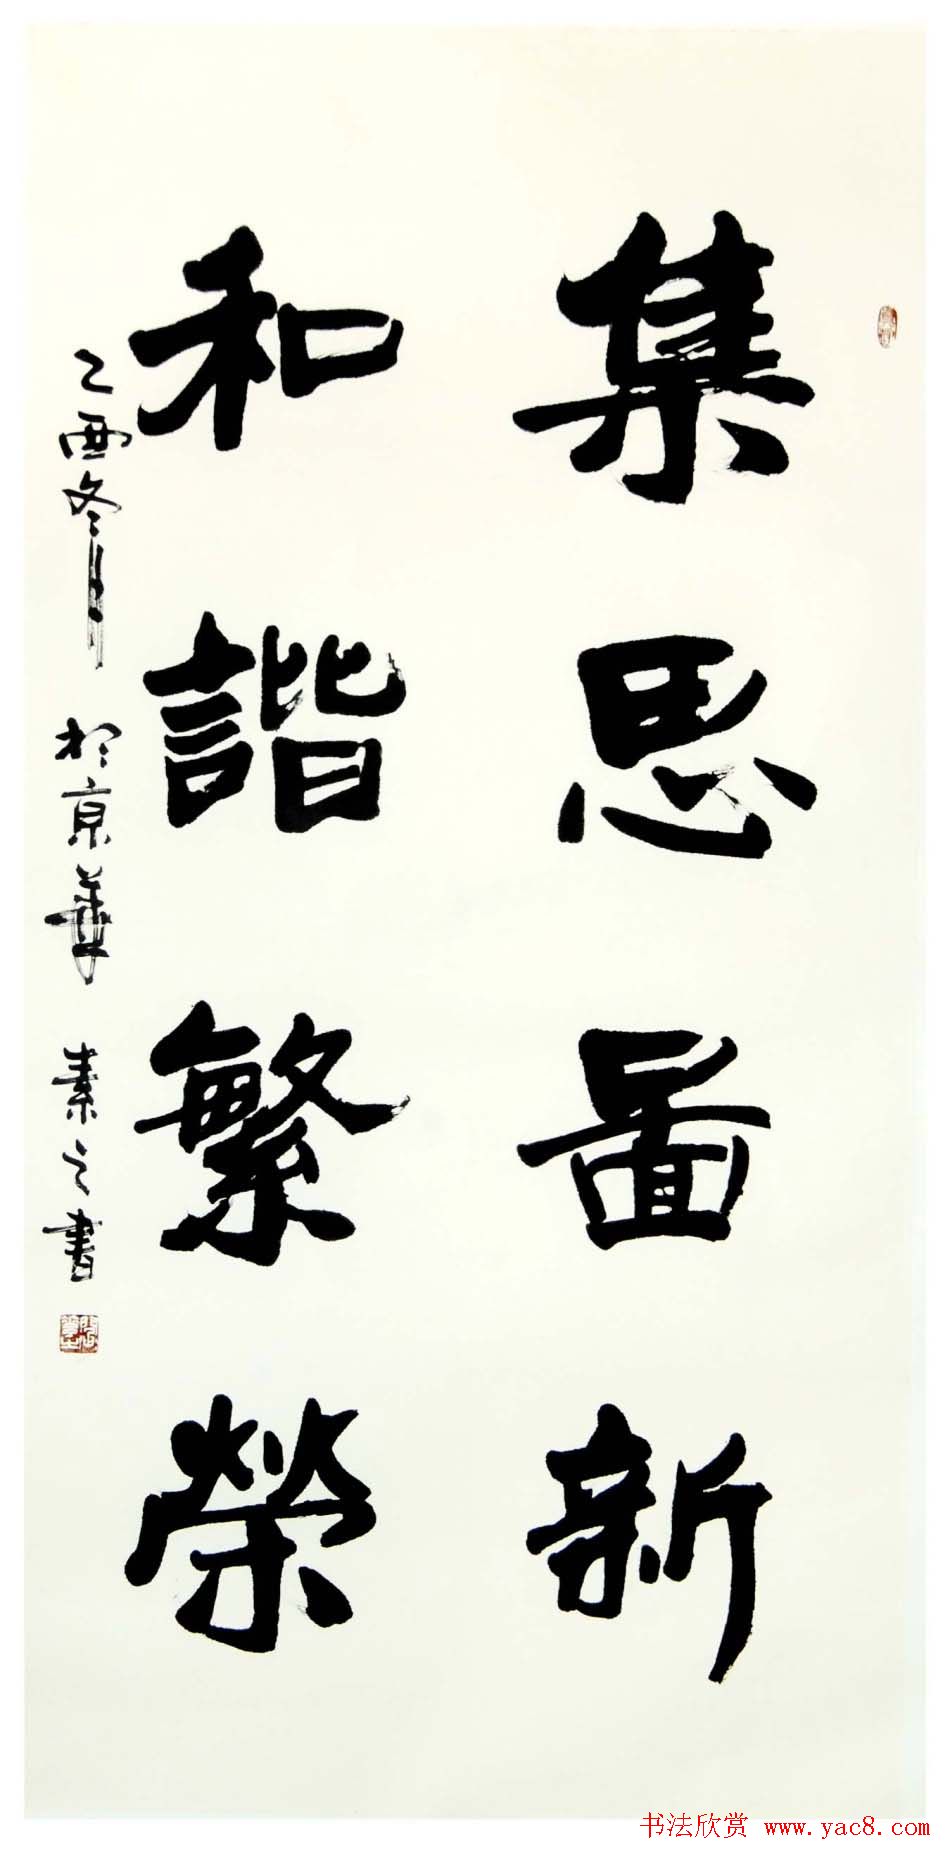 集思圖新
和諧繁榮
乙酉冬月於京華素之書
书法欣赏 www.yac8.com